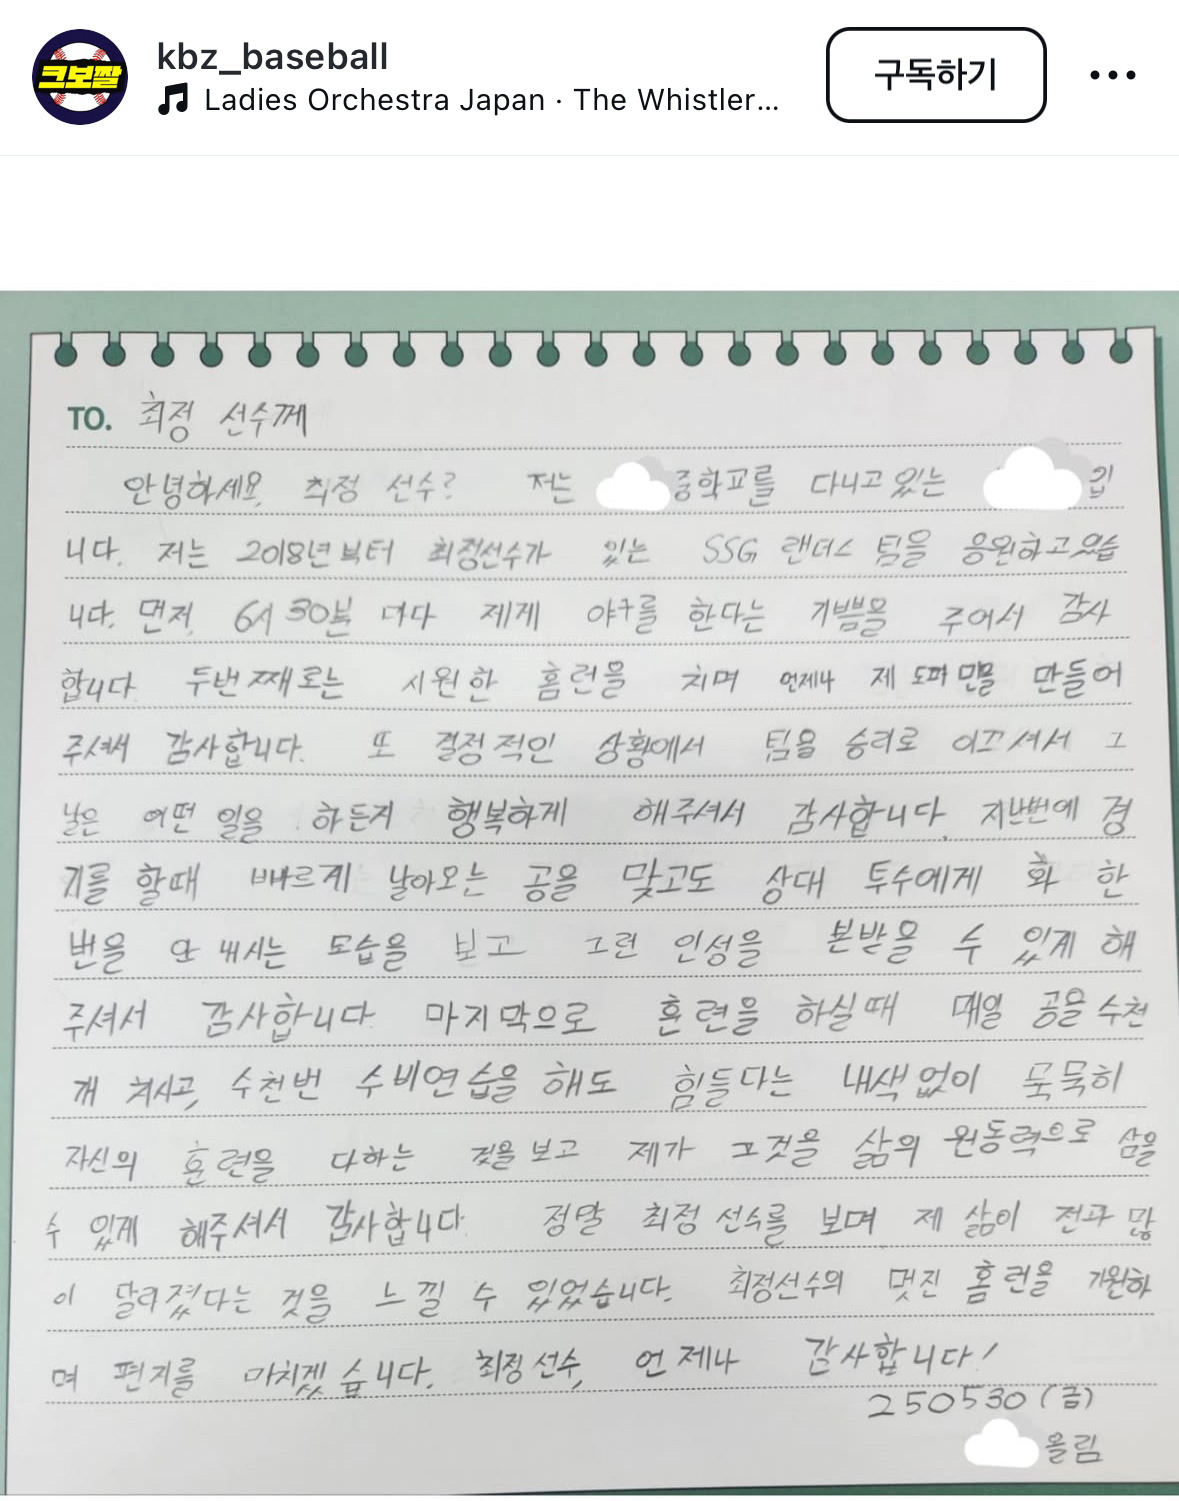 kbz_baseball
크보짤
Ladies Orchestra Japan · The Whistler...
구독하기
TO. 최정 선수께
안녕하세요, 최정 선수? 저는 중학교를 다니고 있는 입
니다. 저는 2018년부터 최정선수가 있는 SSG 랜더스 팀을 응원하고있습
니다. 먼저, 6시 30분 마다 제게 야구를 한다는 기쁨을 주어서 감사
합니다. 두번째로는 시원한 홈런을 치며 언제나 제 도파민을 만들어
주셔서 감사합니다. 또 결정적인 상황에서 팀을 승리로 이끄셔서 그
날은 어떤 일을 하든지 행복하게 해주셔서 감사합니다. 지난번에 경
기를 할때 빠르게 날아오는 공을 맞고도 상대 투수에게 화 한
번을 안 내시는 모습을 보고 그런 인성을 본받을 수 있게 해
주셔서 감사합니다. 마지막으로 훈련을 하실때 매일 공을 수천
개 쳐시고, 수천번 수비연습을 해도 힘들다는 내색없이 묵묵히
자신의 훈련을 다하는 것을 보고 제가 그것을 삶의 원동력으로 삼을
수 있게 해주셔서 감사합니다. 정말 최정 선수를 보며 제 삶이 전과 많
이 달라졌다는 것을 느낄 수 있었습니다. 최정선수의 멋진 홈런을 기원하
며 편지를 마치겠습니다. 최정 선수, 언제나 감사합니다!
250530 (금)
올림